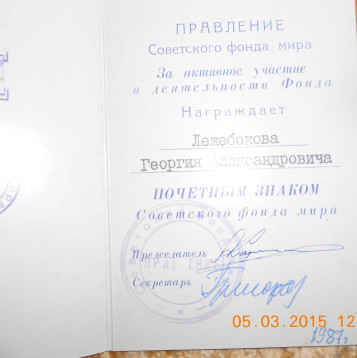 ПРАВЛЕНИЕ
Советского фонда мира
За активное участие
в деятельности Фонда
Награждает
Лежебокова
Георгия Александровича
ПОЧЕТНЫМ ЗНАКОМ
Советского фонда мира
Председатель
Секретарь
1987г
05.03.2015 12